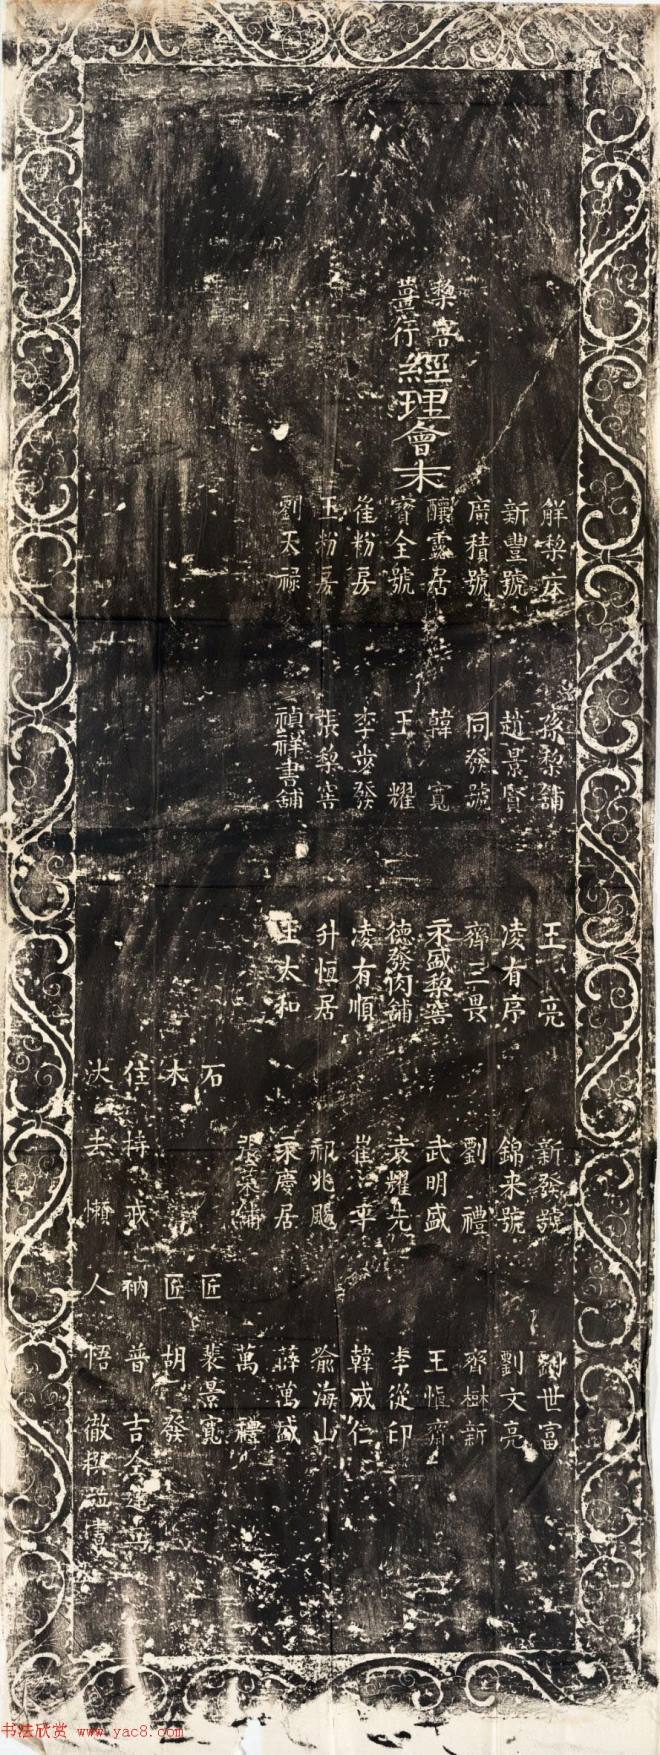 黎窖
薑行
經理會末
解黎店 孫黎舖 王亮 新發號 劉世富
新豐號 趙景賢 凌有序 錦來號 劉文亮
廣積號 同發號 齊三畏 劉禮 齊樹新
釀露居 韓寬 永盛黎窖 武明盛 王慎齊
寶全號 王耀 德發肉舖 袁耀先 李從印
崔粉房 李步發 凌有順 韓成仁
王粉房 張黎窖 升恒居 祁兆颺 俞海山
劉天祿 禎祥書舖 王太和 永慶居 薛萬盛
萬禮
石匠 裴景寬
木匠 胡發
住持戒衲普吉全建立
汰去懶人悟徹撰並書
书法欣赏 www.yac8.com